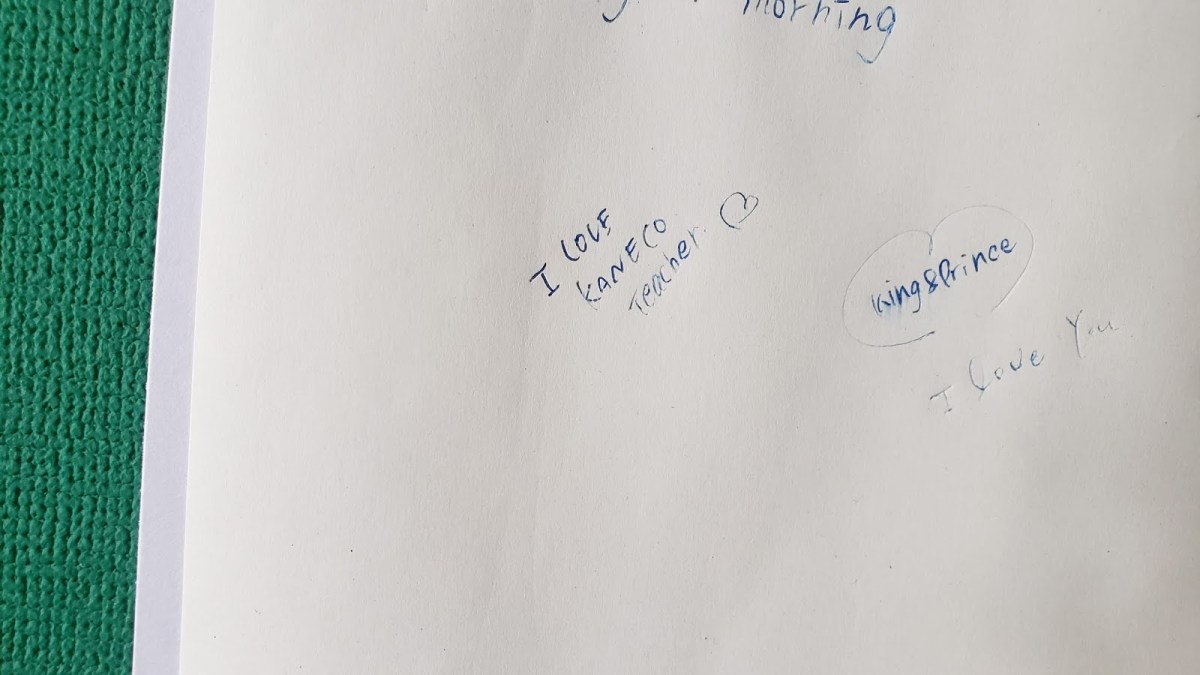 morning
I LOVE
KANECO
Teacher.
King&Prince
I love You